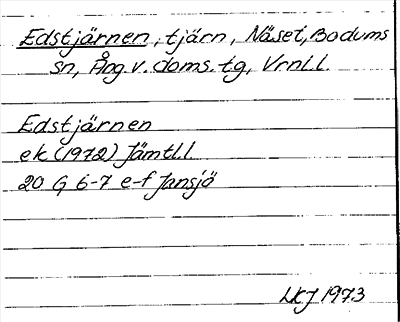 Edstjärnen, tjärn, Näset, Bodums
sn, Ång.v. doms. tg, Vrnl.l.
Edstjärnen
ek (1972) Jämtl.l.
20 G 6-7 e-f Jansjö
LKJ 1973